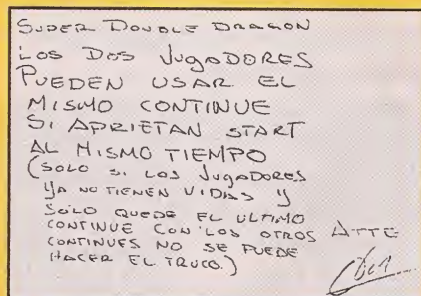 SUPER DOUBLE DRAGON
LOS DOS JUGADORES
PUEDEN USAR EL
MISMO CONTINUE
SI APRIETAN START
AL MISMO TIEMPO
(SOLO SI LOS JUGADORES
YA NO TIENEN VIDAS Y
SOLO QUEDE EL ULTIMO
CONTINUE CON LOS OTROS ATTE
CONTINUES NO SE PUEDE
HACER EL TRUCO.)